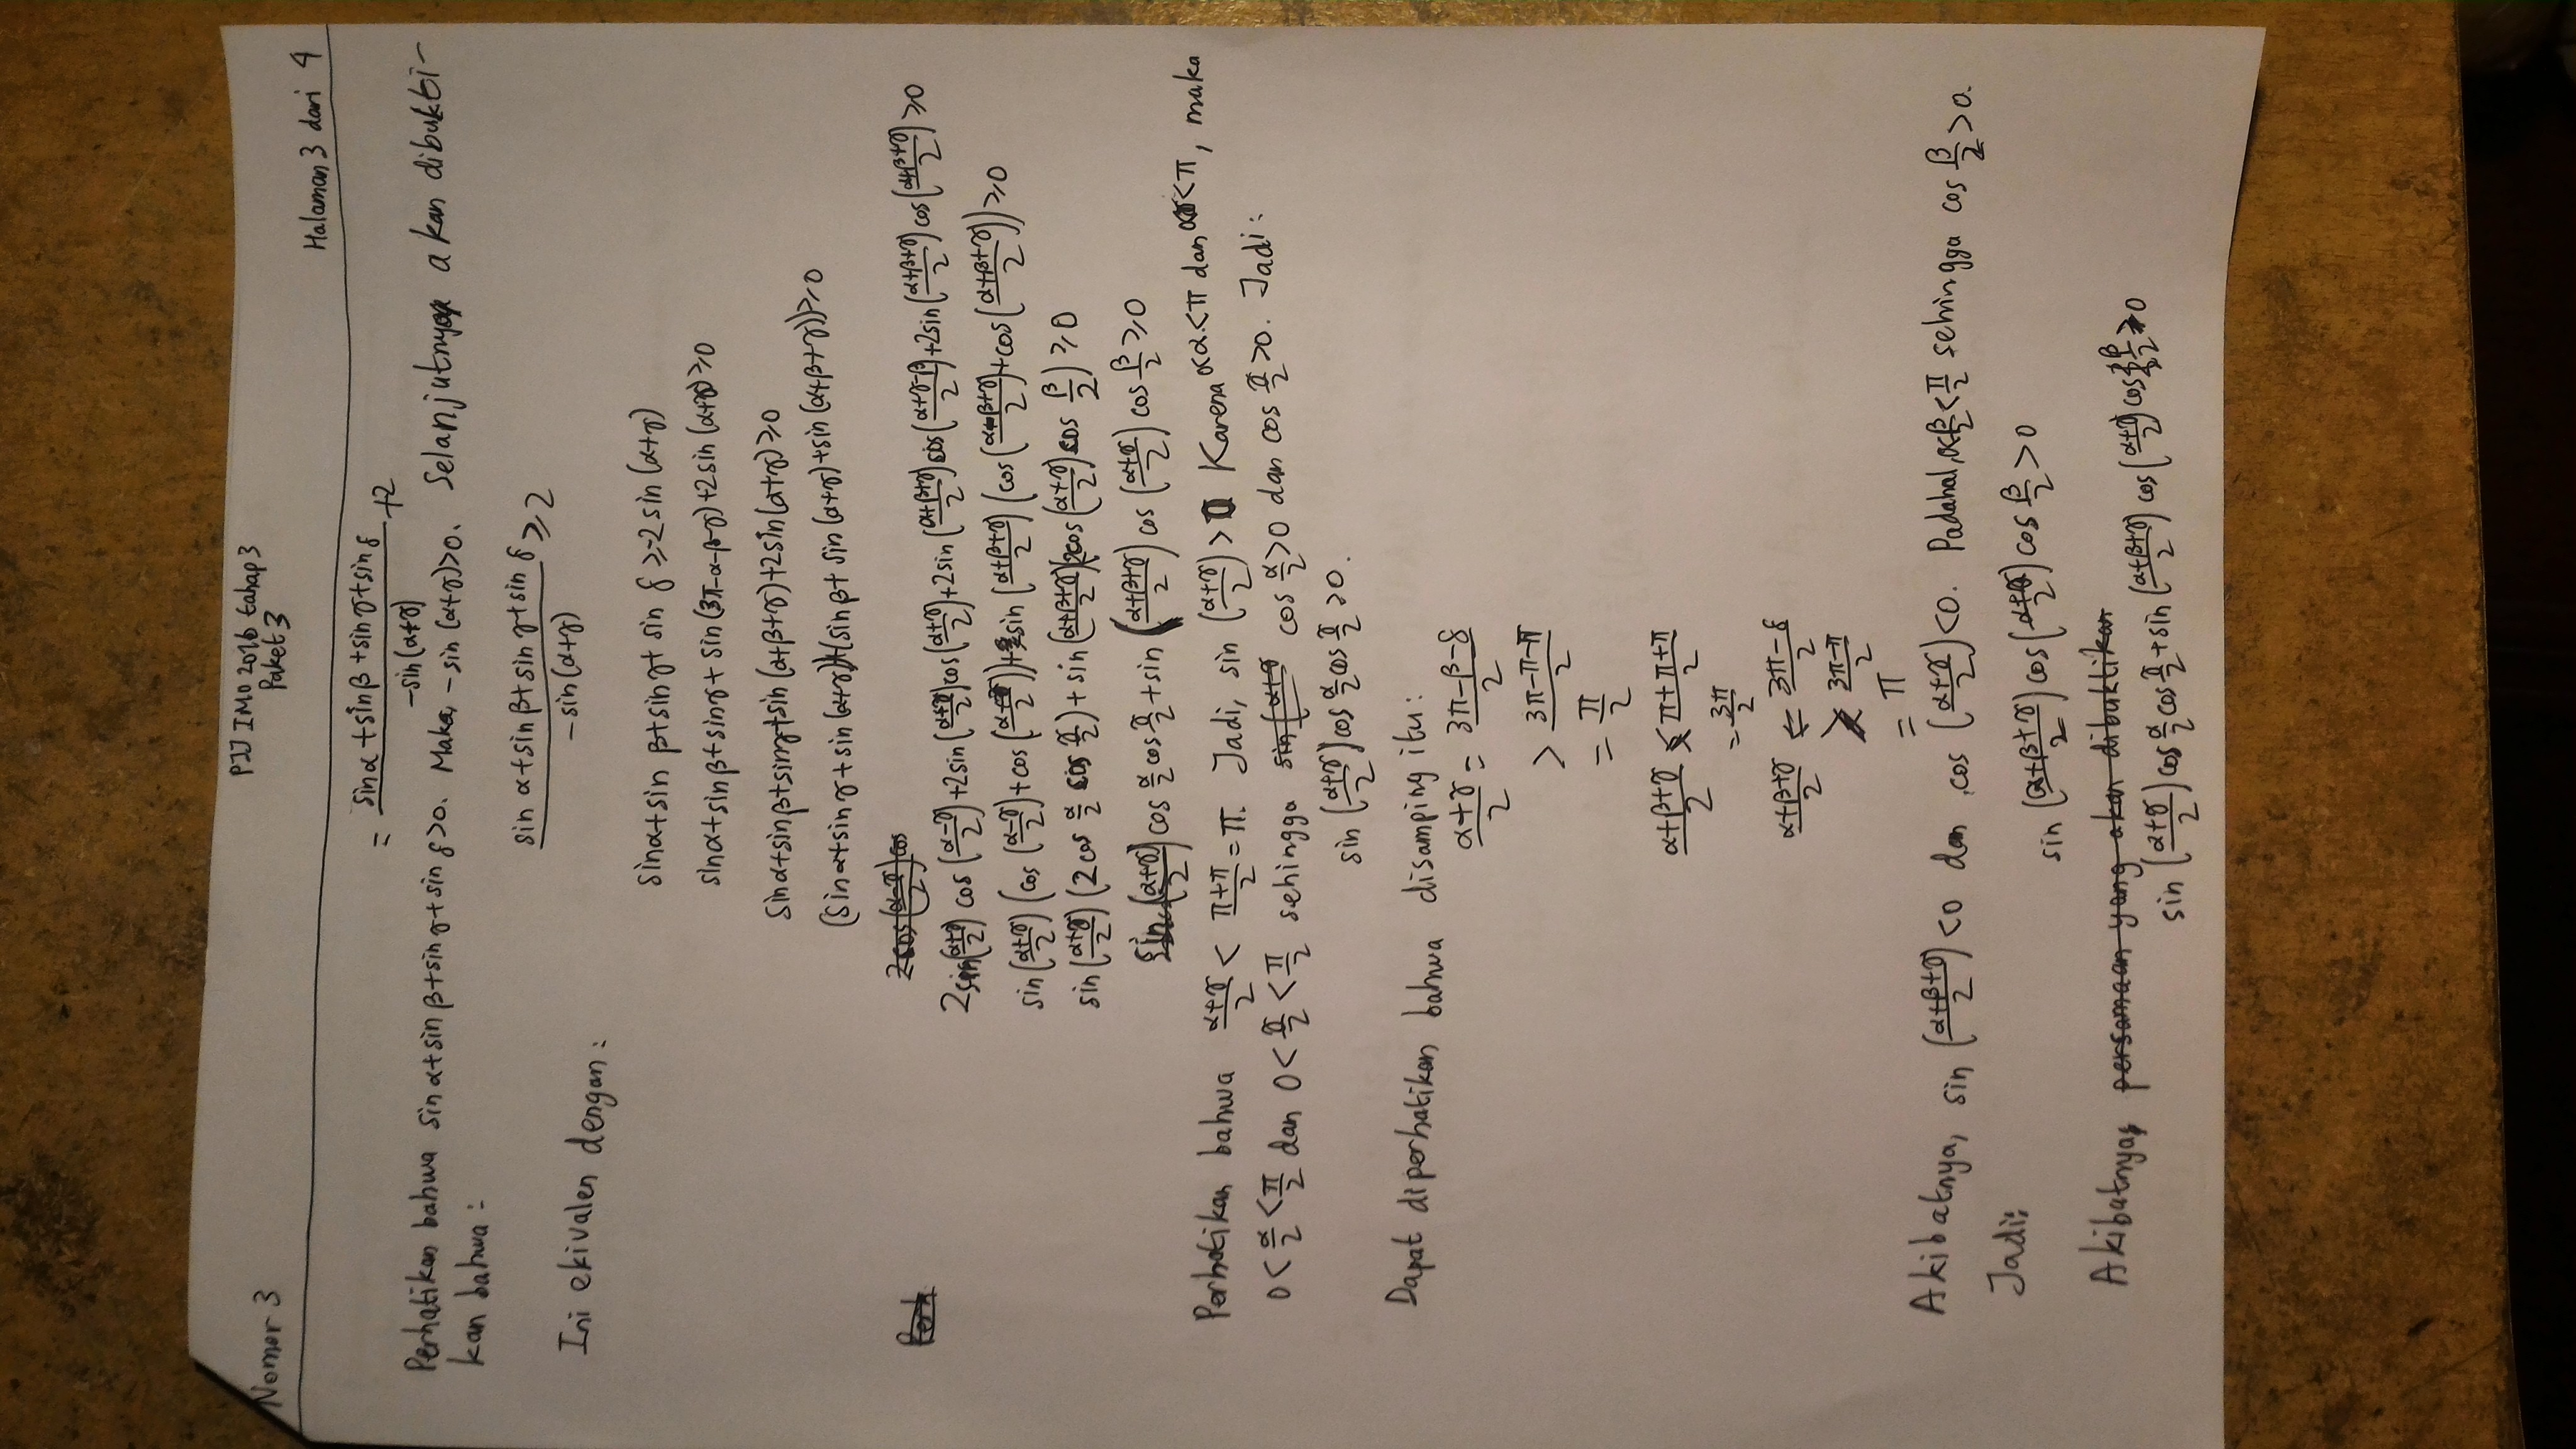 PJJ IMO 2016 tahap 3
Nomor 3
Paket 3
Halaman 3 dari 4
= (sin α + sin β + sin γ + sin δ)/(-sin(α+γ)) + 2
Perhatikan bahwa sin α + sin β + sin γ + sin δ > 0. Maka, -sin (α+γ) > 0. Selanjutnya akan dibukti-
kan bahwa :
(sin α + sin β + sin γ + sin δ)/(-sin(α+γ)) ≥ 2
Ini ekivalen dengan :
sin α + sin β + sin γ + sin δ ≥ -2 sin (α+γ)
sin α + sin β + sin γ + sin (3π-α-β-γ) + 2 sin (α+γ) ≥ 0
sin α + sin β + sin γ + sin (α+β+γ) + 2 sin (α+γ) ≥ 0
(sin α + sin γ + sin (α+γ)) + (sin β + sin (α+γ) + sin (α+β+γ)) ≥ 0
2 sin((α+γ)/2) cos ((α-γ)/2) + 2 sin ((α+γ)/2) cos ((α+γ)/2) + 2 sin ((α+β+γ)/2) cos ((α+γ-β)/2) + 2 sin ((α+β+γ)/2) cos ((α+β+γ)/2) ≥ 0
sin ((α+γ)/2) (cos ((α-γ)/2) + cos ((α+γ)/2)) + sin ((α+β+γ)/2) (cos ((α-β+γ)/2) + cos ((α+β+γ)/2)) ≥ 0
sin ((α+γ)/2) (2 cos α/2 cos γ/2) + sin ((α+β+γ)/2) (2 cos ((α+γ)/2) cos β/2) ≥ 0
sin ((α+γ)/2) cos α/2 cos γ/2 + sin ((α+β+γ)/2) cos ((α+γ)/2) cos β/2 ≥ 0
Perhatikan bahwa (α+γ)/2 < (π+π)/2 = π. Jadi, sin ((α+γ)/2) > 0 Karena 0<α<π dan 0<γ<π, maka
0 < α/2 < π/2 dan 0 < γ/2 < π/2 sehingga cos α/2 > 0 dan cos γ/2 > 0. Jadi :
sin ((α+γ)/2) cos α/2 cos γ/2 > 0.
Dapat diperhatikan bahwa disamping itu :
(α+γ)/2 = (3π-β-δ)/2
> (3π-π-π)/2
= π/2
(α+β+γ)/2 < (π+π+π)/2
= 3π/2
(α+β+γ)/2 = (3π-δ)/2
> (3π-π)/2
= π
Akibatnya, sin ((α+β+γ)/2) < 0 dan cos ((α+γ)/2) < 0. Padahal, 0<β/2<π/2 sehingga cos β/2 > 0.
Jadi:
sin ((α+β+γ)/2) cos ((α+γ)/2) cos β/2 > 0
Akibatnya, persamaan yang akan dibuktikan
sin ((α+γ)/2) cos α/2 cos γ/2 + sin ((α+β+γ)/2) cos ((α+γ)/2) cos β/2 > 0